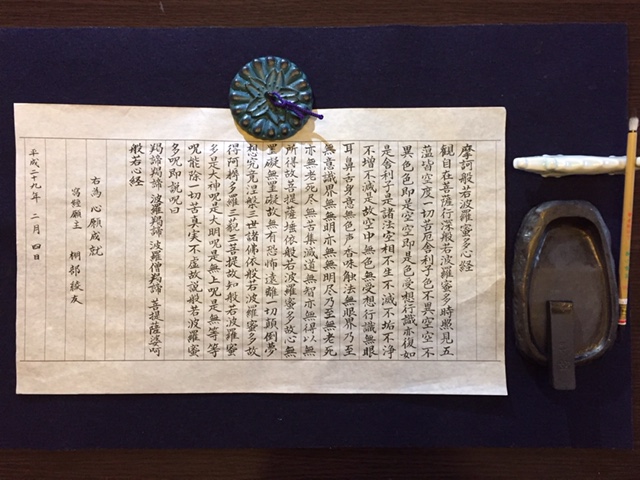 摩訶般若波羅蜜多心経
観自在菩薩行深般若波羅蜜多時照見五
蘊皆空度一切苦厄舎利子色不異空空不
異色色即是空空即是色受想行識亦復如
是舎利子是諸法空相不生不滅不垢不浄
不増不減是故空中無色無受想行識無眼
耳鼻舌身意無色声香味触法無眼界乃至
無意識界無無明亦無無明尽乃至無老死
亦無老死尽無苦集滅道無智亦無得以無
所得故菩提薩埵依般若波羅蜜多故心無
罣礙無罣礙故無有恐怖遠離一切顛倒夢
想究竟涅槃三世諸佛依般若波羅蜜多故
得阿耨多羅三藐三菩提故知般若波羅蜜
多是大神呪是大明呪是無上呪是無等等
呪能除一切苦真実不虚故説般若波羅蜜
多呪即説呪曰
羯諦羯諦 波羅羯諦 波羅僧羯諦 菩提薩婆呵
般若心経
右為心願成就
写経願主 棚部綾友
平成二十九年 二月 四日